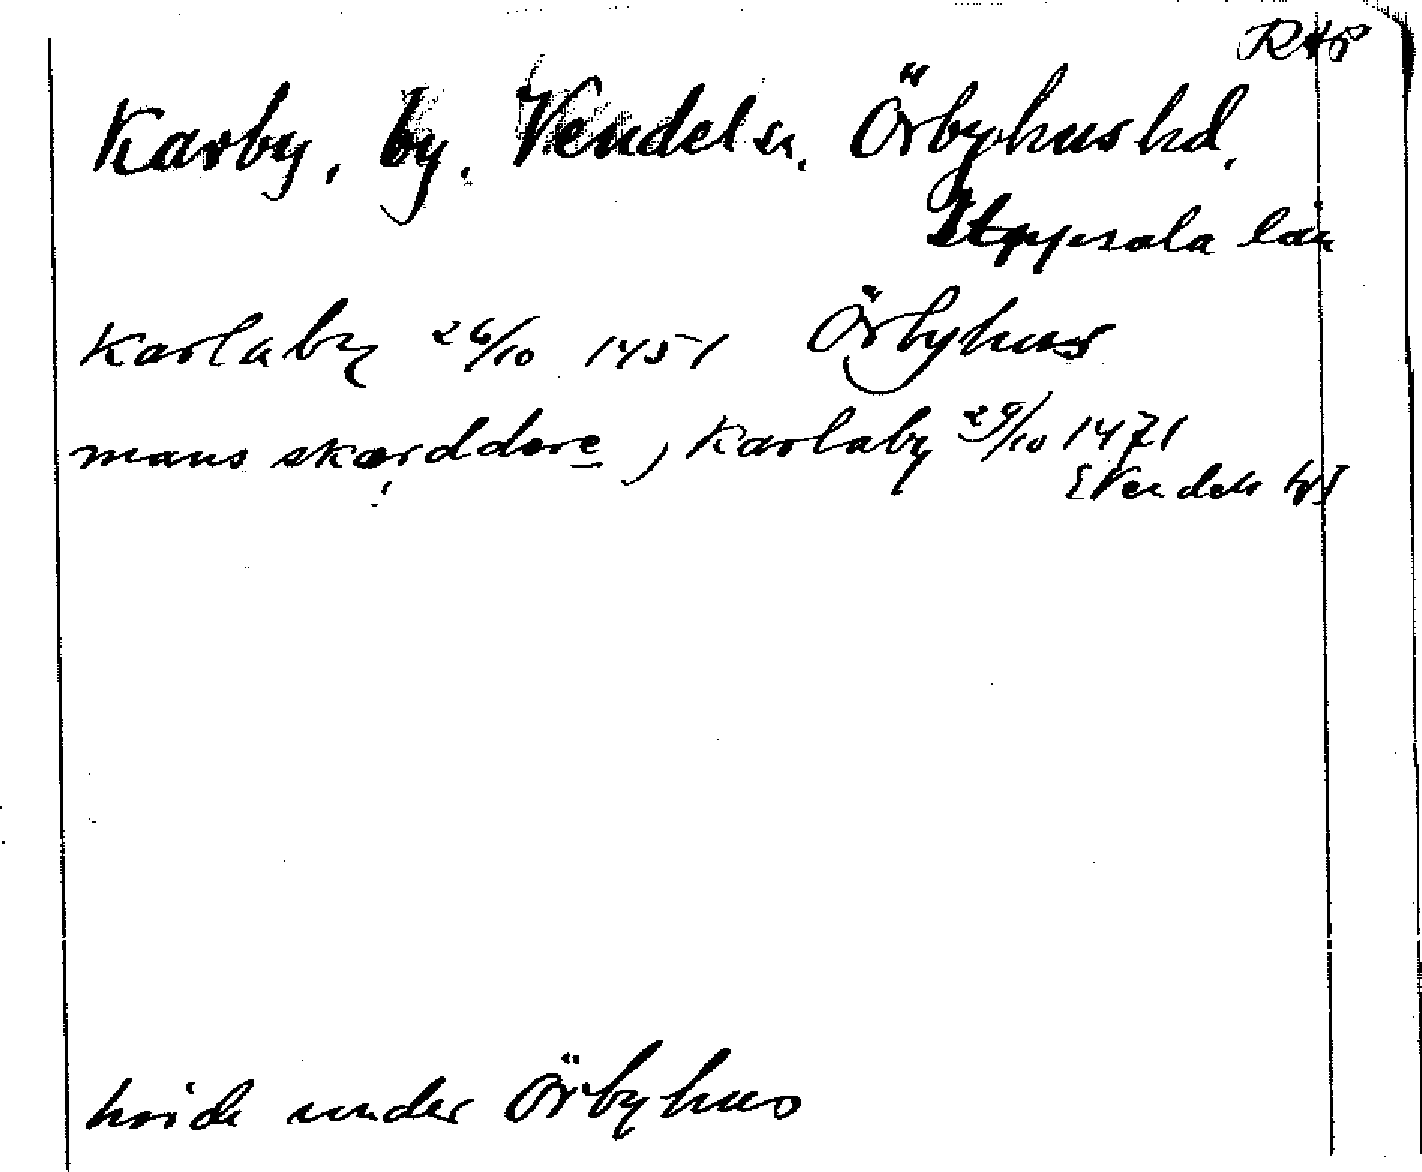 RAP
Karby, by. Vendel sn. Örbyhus hd.
Uppsala län
Karlaby 26/10 1451 Örbyhus
mans skærddere, Karlaby 29/10 1471
[Vendels
hörde under Örbyhus